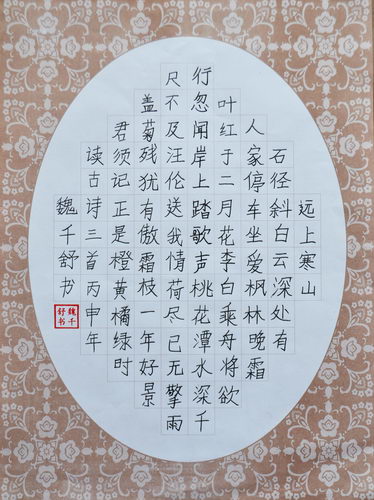 远上寒山
石径斜白云深处有
人家停车坐爱枫林晚霜
叶红于二月花李白乘舟将欲
行忽闻岸上踏歌声桃花潭水深千
尺不及汪伦送我情荷尽已无擎雨
盖菊残犹有傲霜枝一年好景
君须记正是橙黄橘绿时
读古诗三首丙申年
魏千舒书
魏千
舒书